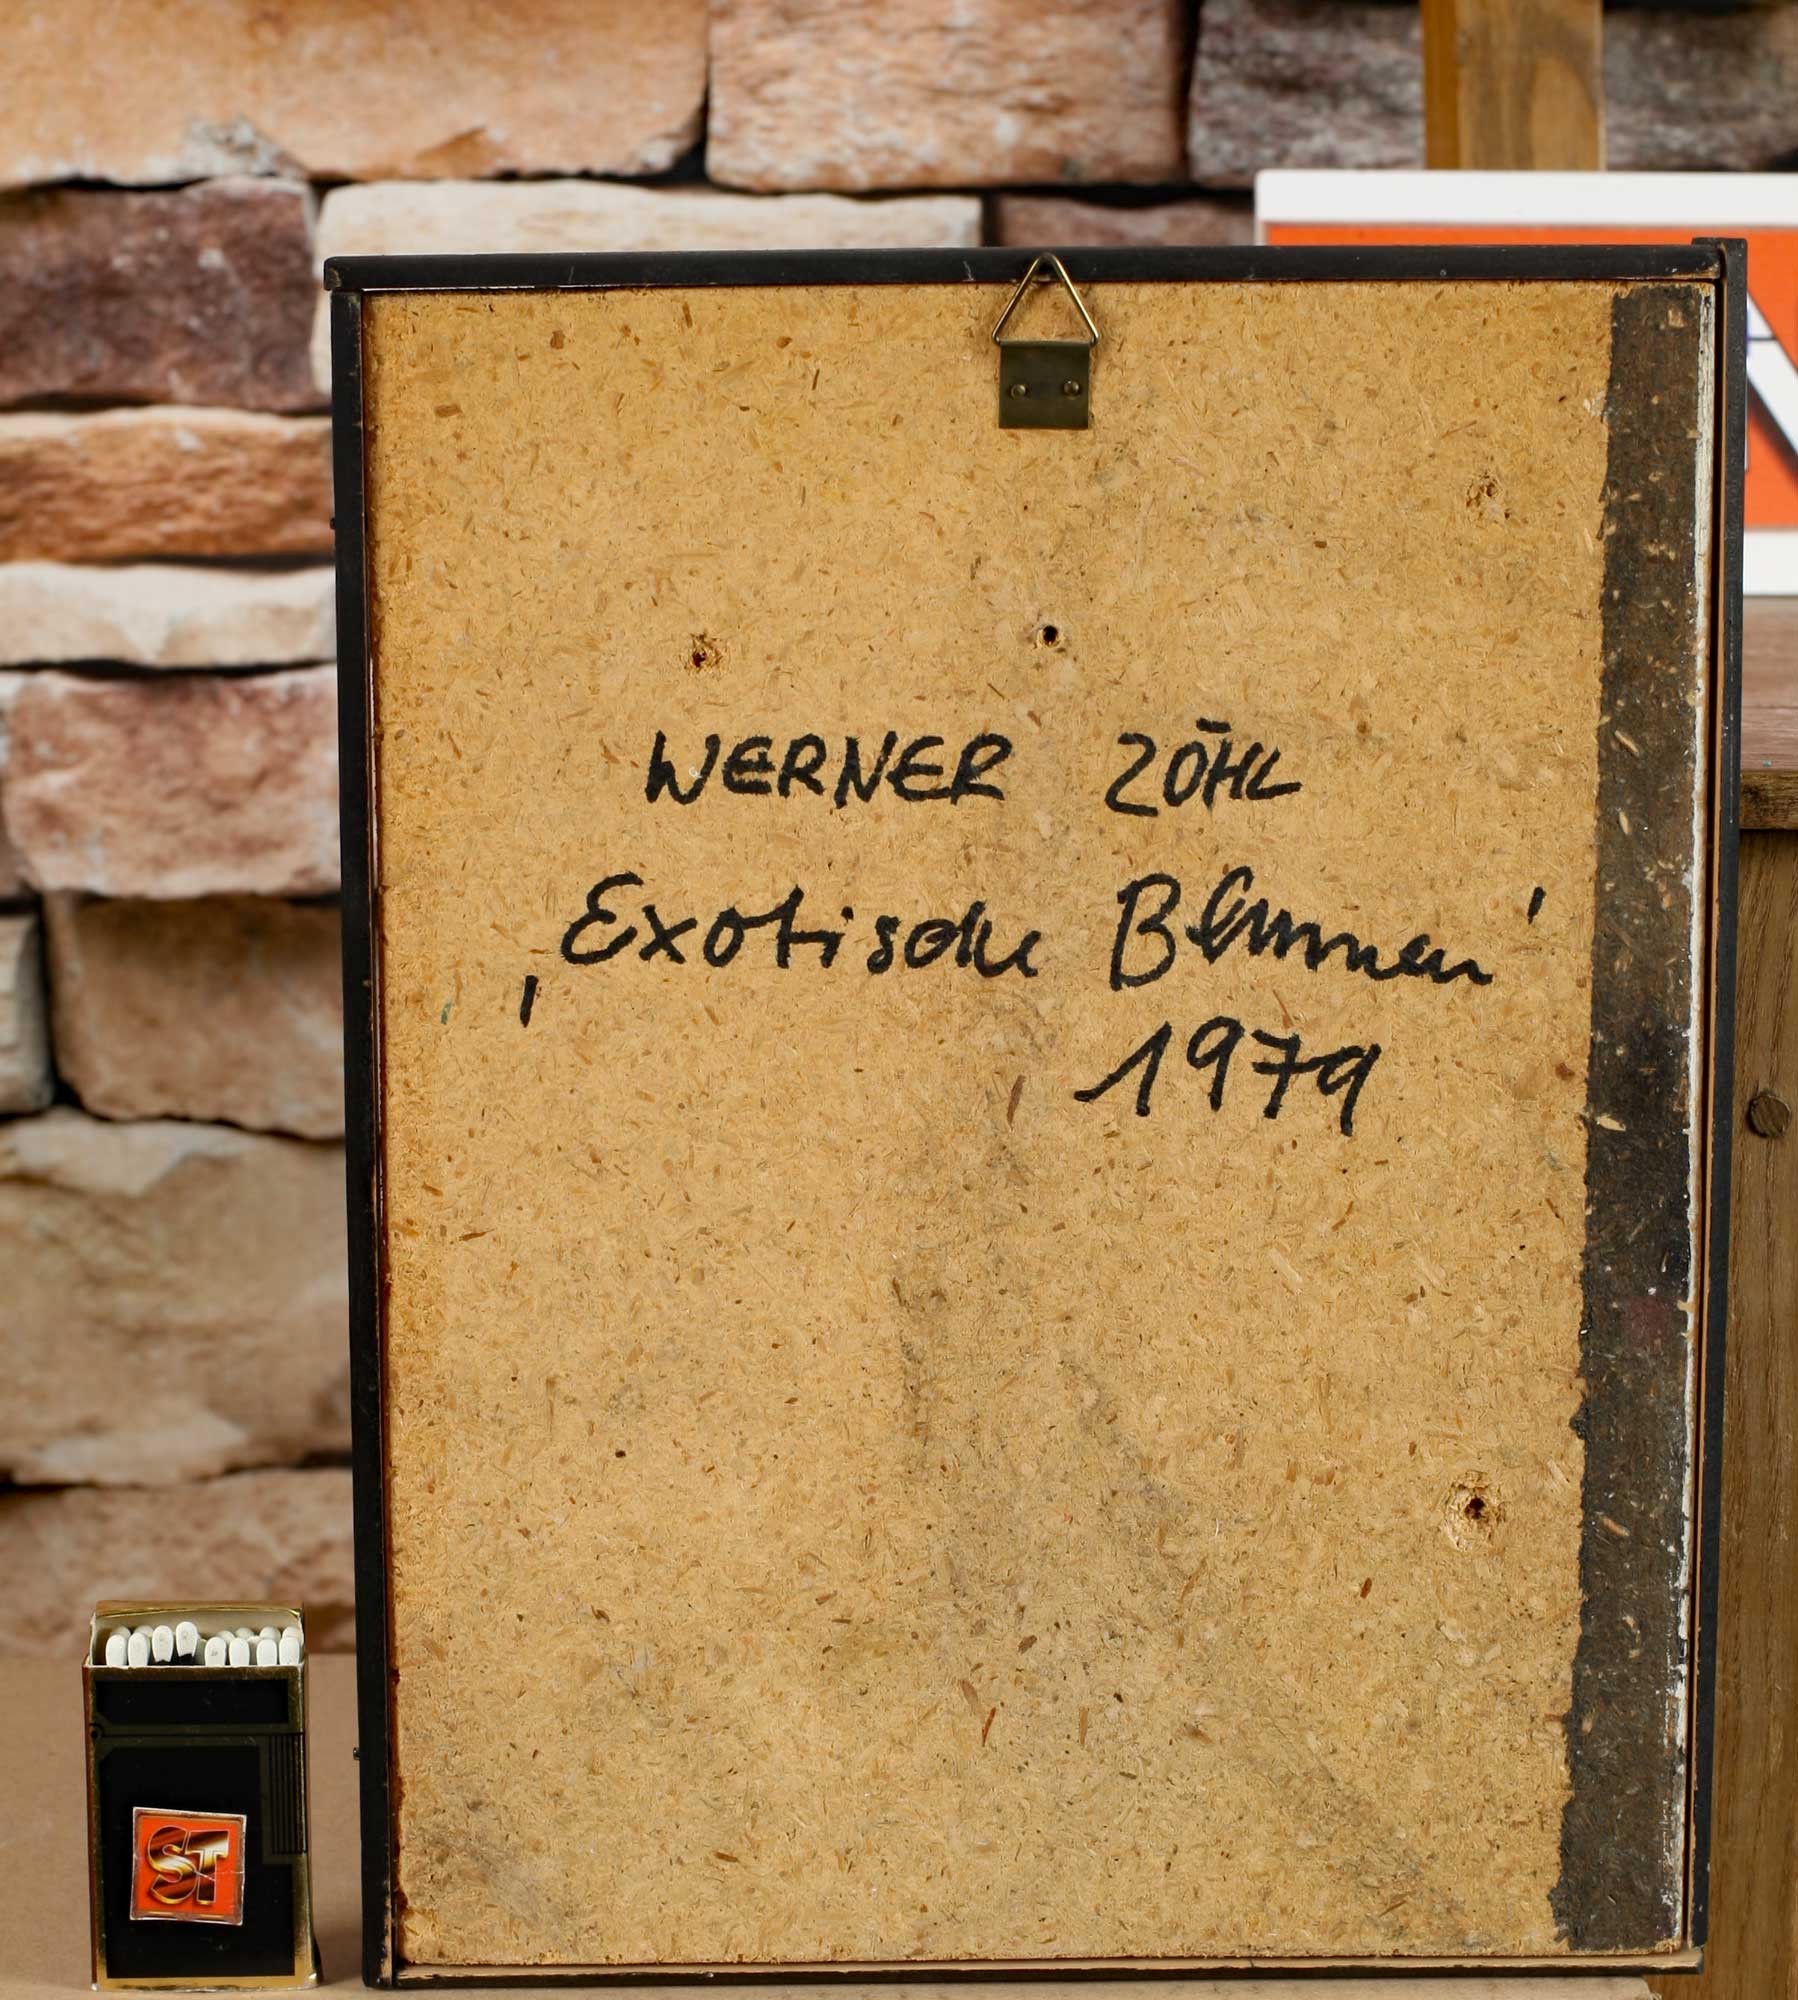 WERNER ZÖHL
'Exotische Blumen'
1979
ST